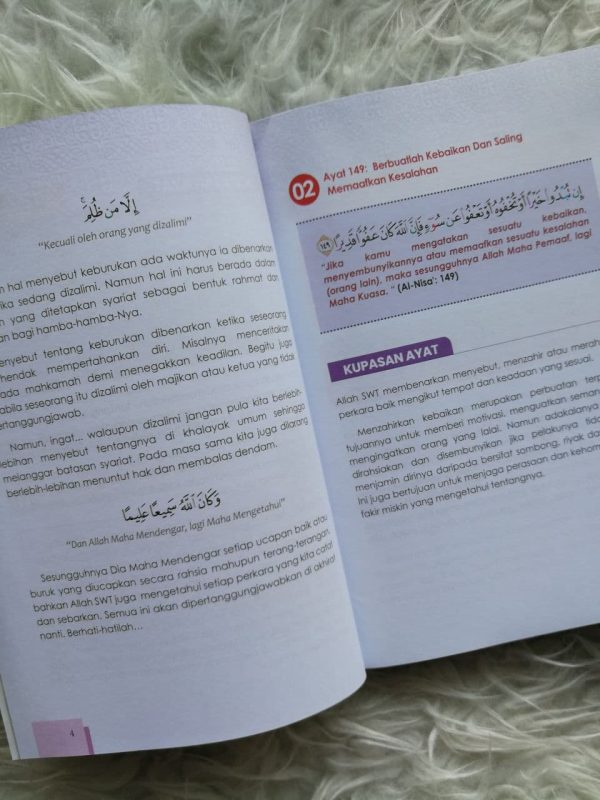 إِلَّا مَن ظُلِمَ ۚ
"Kecuali oleh orang yang dizalimi"
hal menyebut keburukan ada waktunya ia dibenarkan
ika sedang dizalimi. Namun hal ini harus berada dalam
yang ditetapkan syariat sebagai bentuk rahmat dan
an bagi hamba-hamba-Nya.
enyebut tentang keburukan dibenarkan ketika seseorang
hendak mempertahankan diri. Misalnya menceritakan
ada mahkamah demi menegakkan keadilan. Begitu juga
abila seseorang itu dizalimi oleh majikan atau ketua yang tidak
ertanggungjawab.
Namun, ingat... walaupun dizalimi jangan pula kita berlebih-
lebihan menyebut tentangnya di khalayak umum sehingga
melanggar batasan syariat. Pada masa sama kita juga dilarang
berlebih-lebihan menuntut hak dan membalas dendam.
وَكَانَ ٱللَّهُ سَمِيعًا عَلِيمًا
"Dan Allah Maha Mendengar, lagi Maha Mengetahui"
Sesungguhnya Dia Maha Mendengar setiap ucapan baik atau
buruk yang diucapkan secara rahsia mahupun terang-terangan,
bahkan Allah SWT juga mengetahui setiap perkara yang kita catat
dan sebarkan. Semua ini akan dipertanggungjawabkan di akhirat
nanti. Berhati-hatilah...
4
02
Ayat 149: Berbuatlah Kebaikan Dan Saling
Memaafkan Kesalahan
إِن تُبْدُوا۟ خَيْرًا أَوْ تُخْفُوهُ أَوْ تَعْفُوا۟ عَن سُوٓءٍ فَإِنَّ ٱللَّهَ كَانَ عَفُوًّا قَدِيرًا ١٤٩
"Jika kamu mengatakan sesuatu kebaikan,
menyembunyikannya atau memaafkan sesuatu kesalahan
(orang lain), maka sesungguhnya Allah Maha Pemaaf, lagi
Maha Kuasa. " (Al-Nisa': 149)
KUPASAN AYAT
Allah SWT membenarkan menyebut, menzahir atau merah
perkara baik mengikut tempat dan keadaan yang sesuai.
Menzahirkan kebaikan merupakan perbuatan terp
tujuannya untuk memberi motivasi, menguatkan seman
mengingatkan orang yang lalai. Namun adakalanya
dirahsiakan dan disembunyikan jika pelakunya tidak
menjamin dirinya daripada bersifat sombong, riyak da
Ini juga bertujuan untuk menjaga perasaan dan kehorm
fakir miskin yang mengetahui tentangnya.